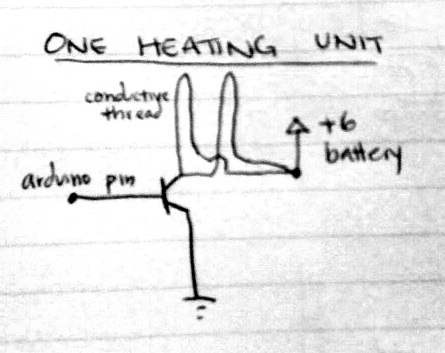 ONE HEATING UNIT
conductive
thread
+6
battery
arduino pin